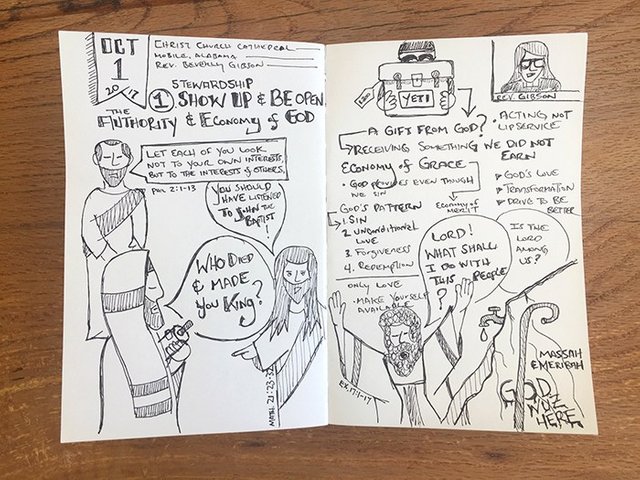 OCT
1
20
17
CHRIST CHURCH CATHEDRAL
MOBILE, ALABAMA
REV. BEVERLY GIBSON
STEWARDSHIP
1 SHOW UP & BE OPEN
THE
AUTHORITY & ECONOMY of GOD
LET EACH OF YOU LOOK
NOT TO YOUR OWN INTERESTS,
BUT TO THE INTERESTS of OTHERS.
PHIL 2:1-13
YOU SHOULD
HAVE LISTENED
TO JOHN THE
BAPTIST
!
WHO DIED
& MADE
YOU KING?
MATH. 21:23-32
YETI
REV. GIBSON
A GIFT FROM GOD?
RECEIVING SOMETHING WE DID NOT
EARN
• ACTING NOT
LIPSERVICE
ECONOMY of GRACE
• GOD PROVIDES EVEN THOUGH
WE SIN
ECONOMY of
MERIT
GOD'S LOVE
TRANSFORMATION
DRIVE TO BE
BETTER
GOD'S PATTERN
1. SIN
2. UNCONDITIONAL
LOVE
3. FORGIVENESS
4. REDEMPTION
ONLY LOVE
• MAKE YOURSELF
AVAILABLE
LORD!
WHAT SHALL
I DO WITH
THIS PEOPLE
?
IS THE
LORD
AMONG
US?
EX. 17:1-17
MASSAH
& MERIBAH
GOD
WUZ
HERE